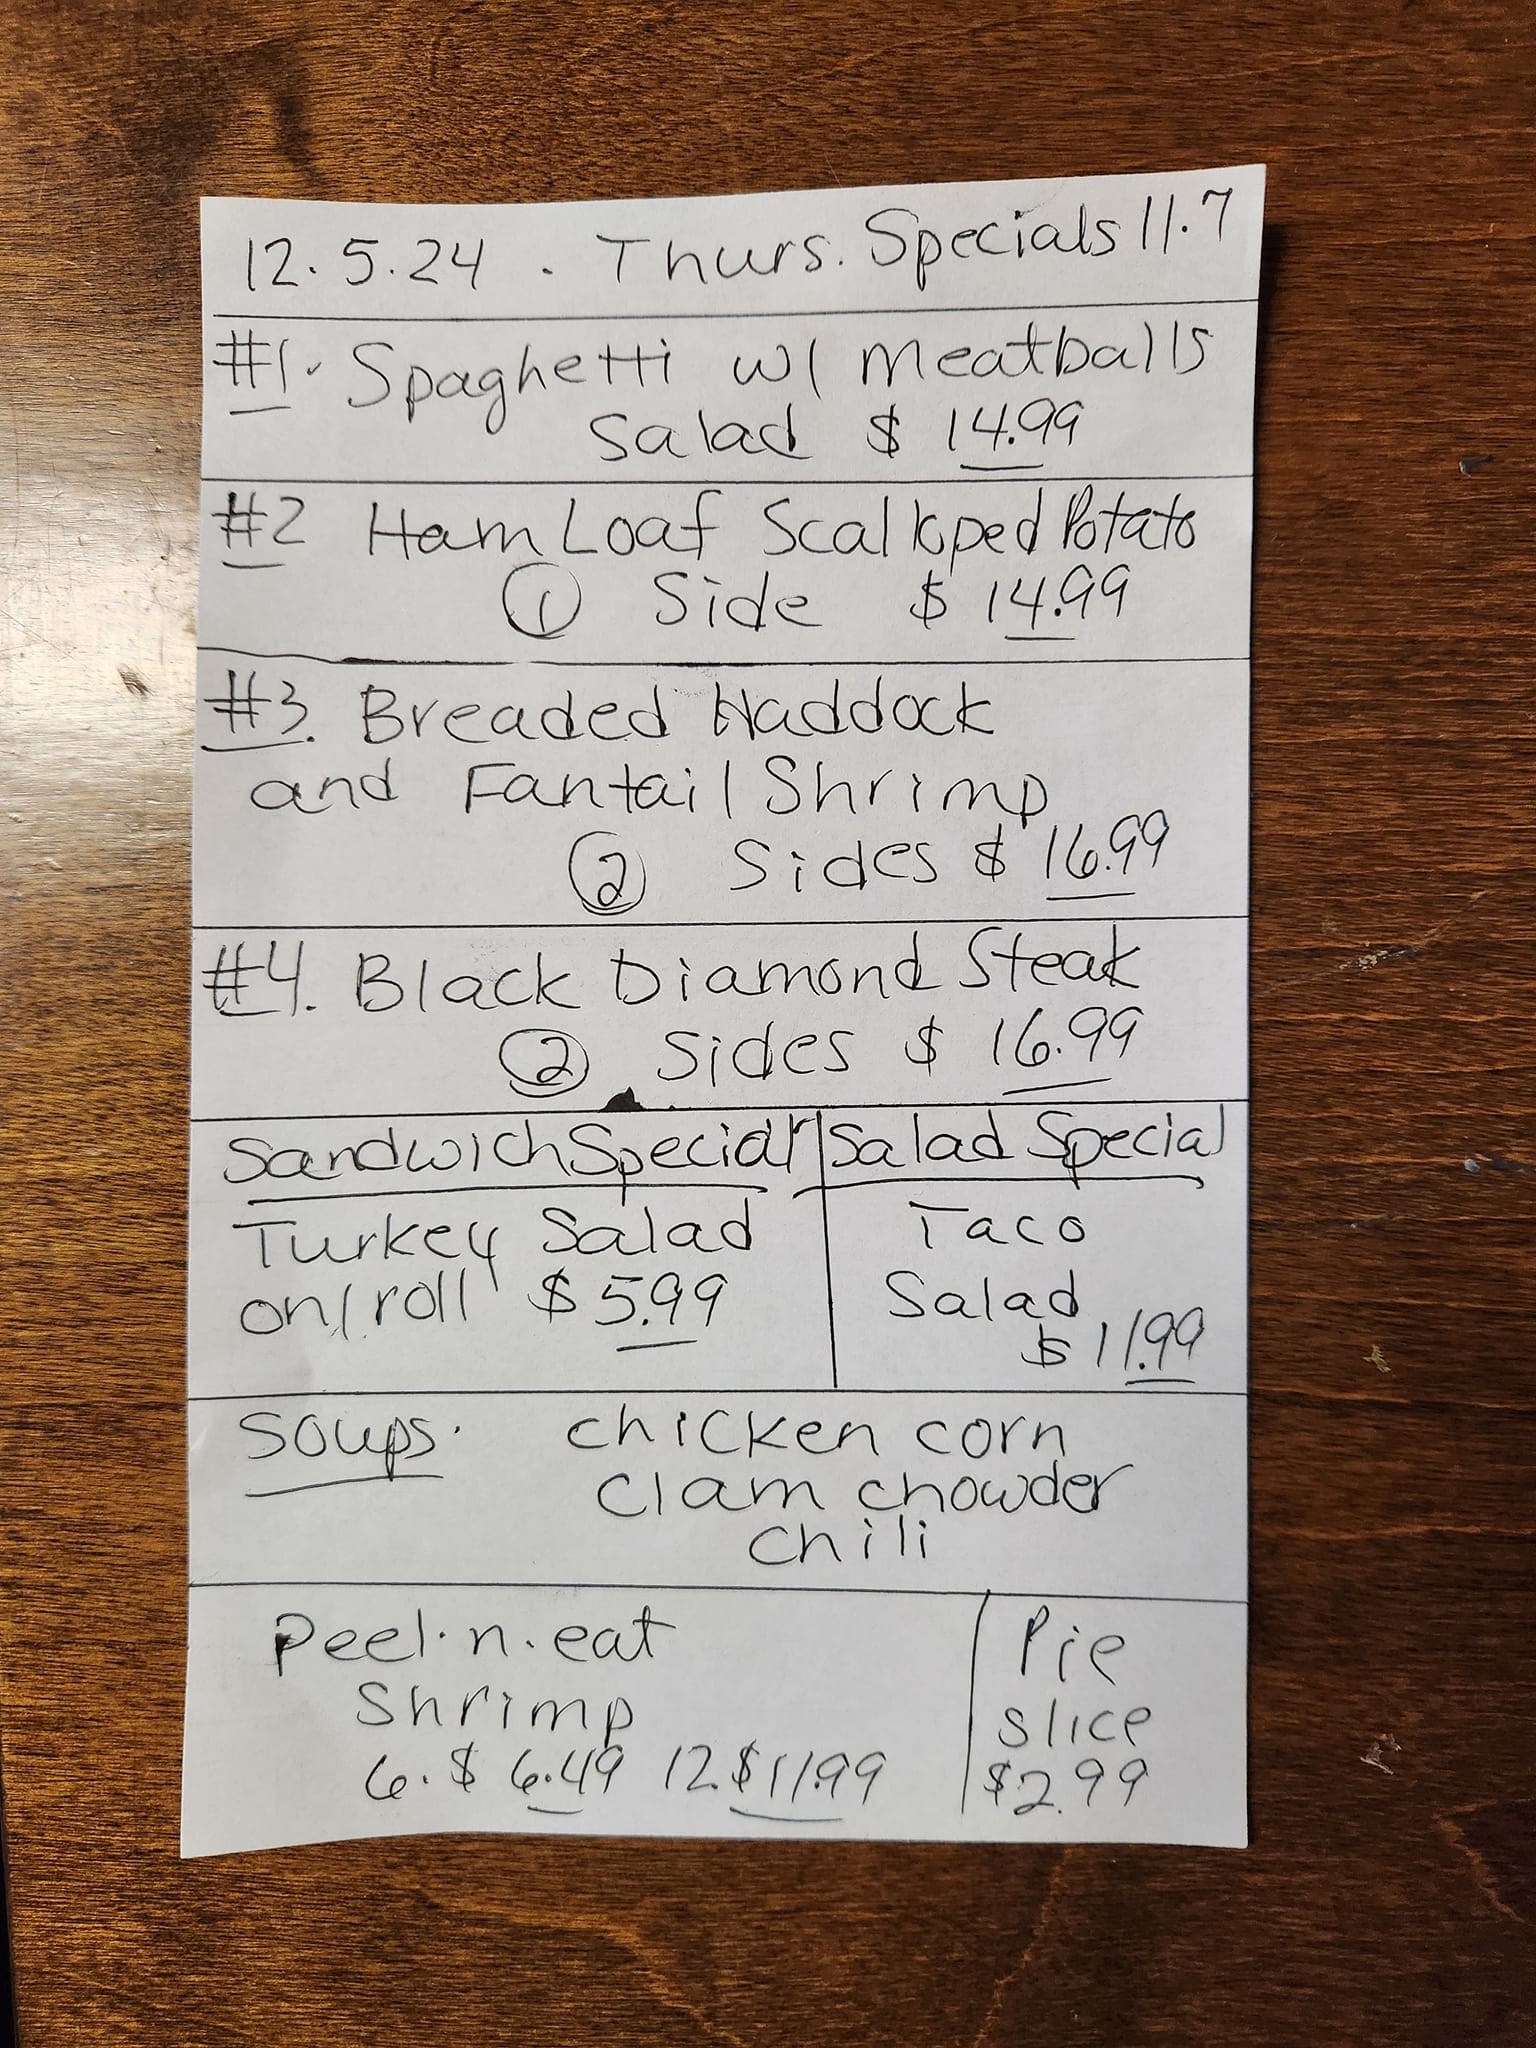 12.5.24 . Thurs. Specials 11.7
#1. Spaghetti w/ Meatballs
Salad $ 14.99
#2 Ham Loaf Scalloped Potato
① Side $ 14.99
#3. Breaded Haddock
and Fantail Shrimp
② Sides $ 16.99
#4. Black Diamond Steak
② Sides $ 16.99
Sandwich Special
Turkey Salad
on/roll $ 5.99
Salad Special
Taco
Salad
$ 11.99
Soups. chicken corn
clam chowder
chili
Peel.n.eat
Shrimp
6. $ 6.49 12. $11.99
Pie
slice
$2.99